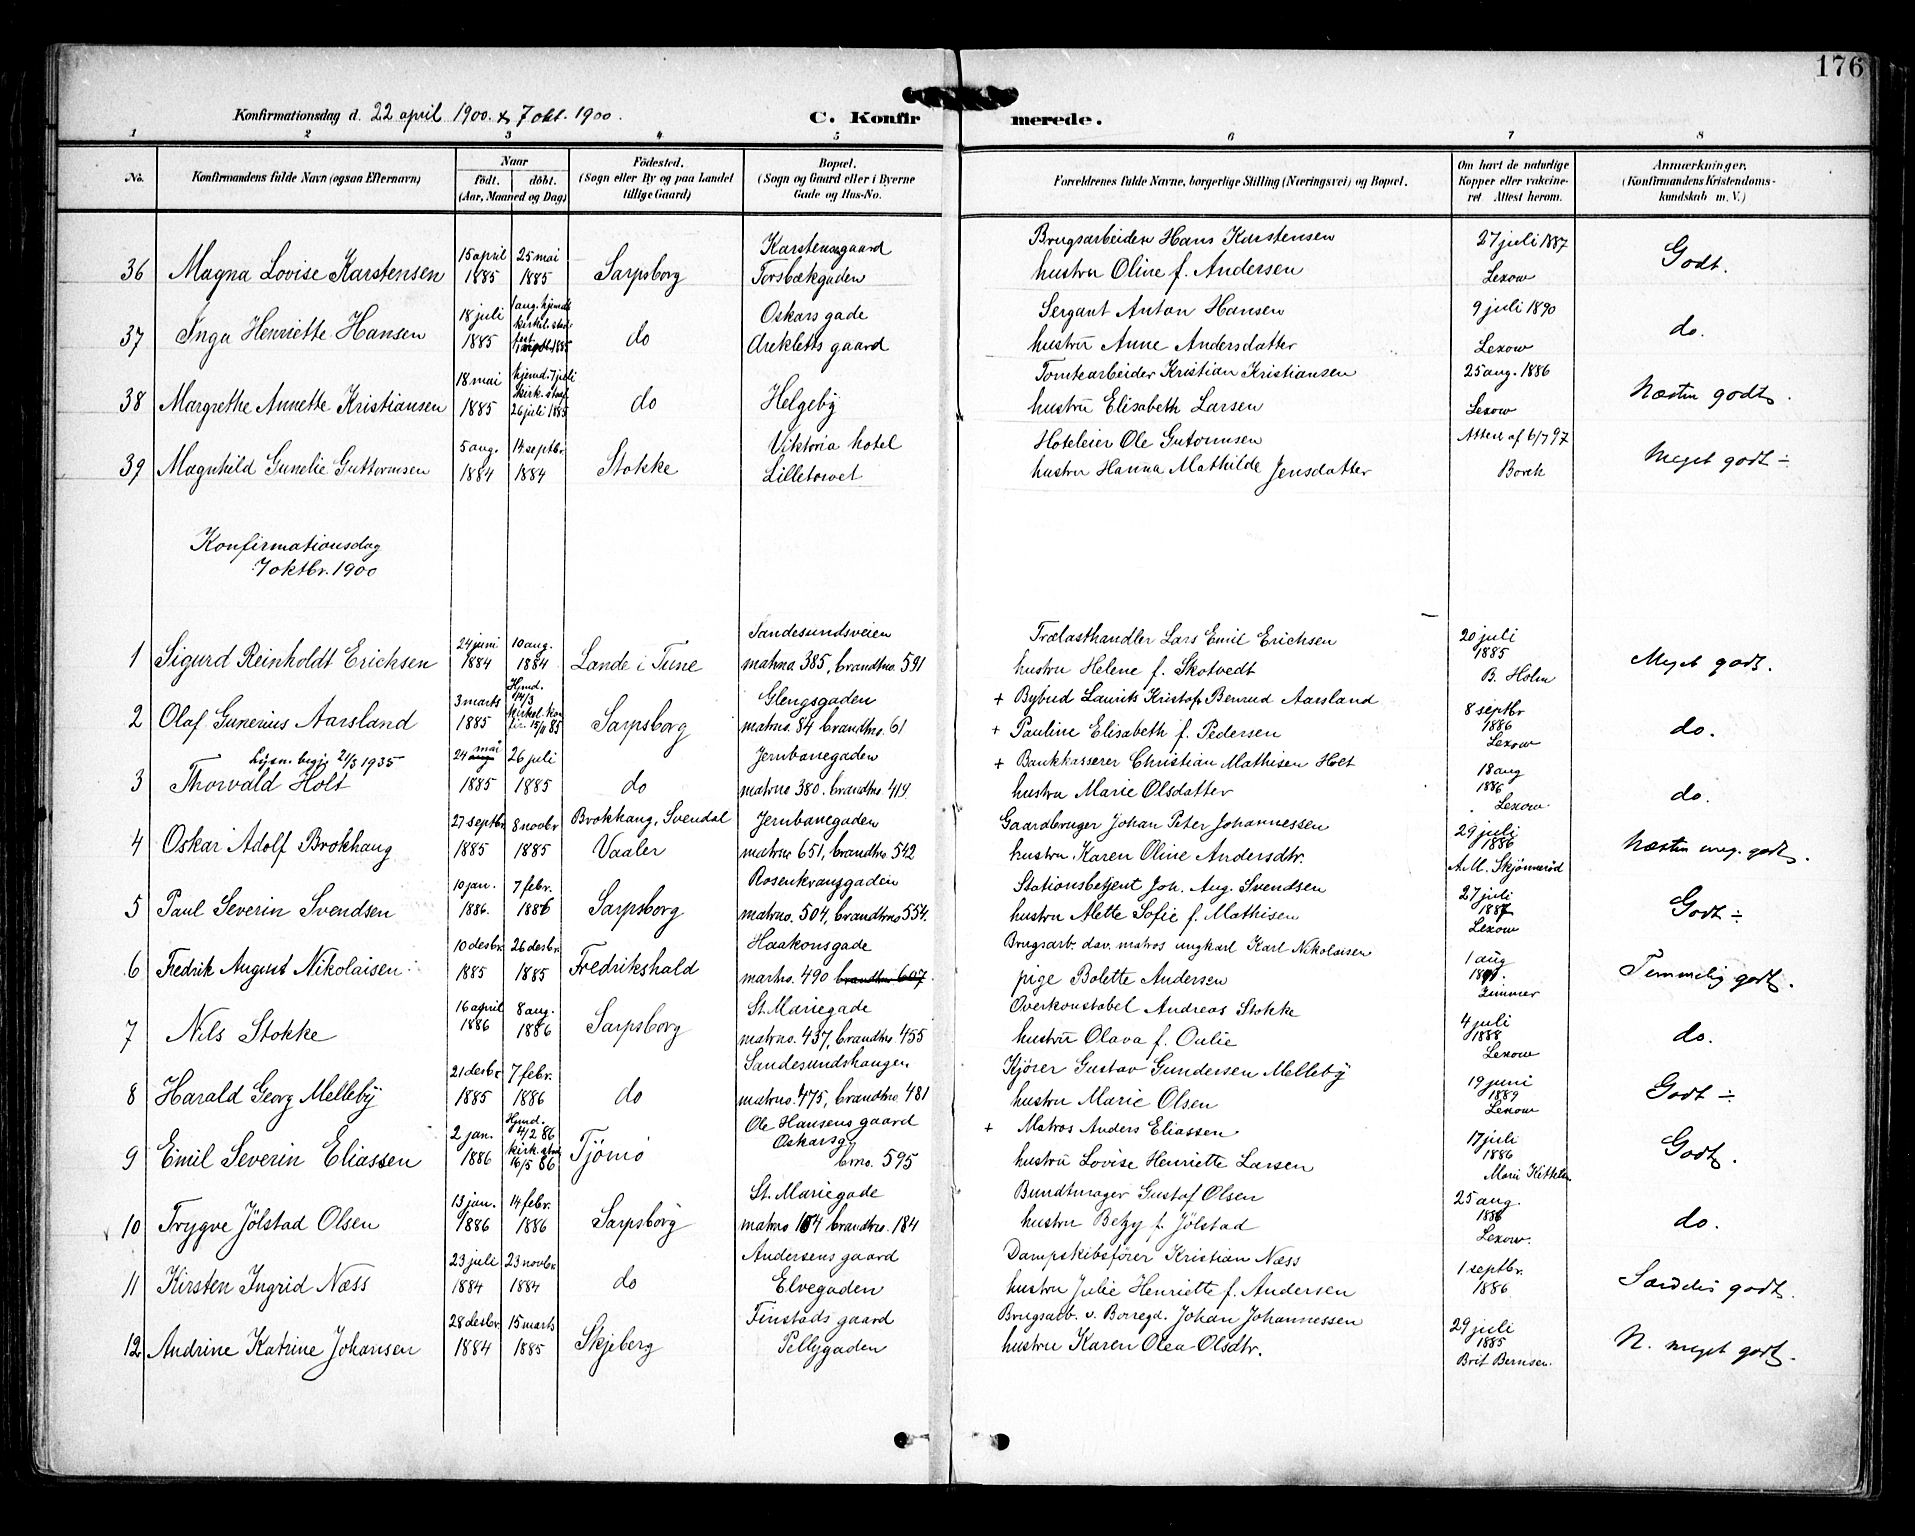 176
Konfirmationsdag d. 22 april 1900 & 7 okt. 1900.
C. Konfirmerede.
1 2 3 4 5 6 7 8
No.
Konfirmandens fulde Navn (ogsaa Efternavn)
Naar
födt. döbt.
(Aar, Maaned og Dag)
Födested.
(Sogn eller By og paa Landet
tillige Gaard)
Bopæl.
(Sogn og Gaard eller i Byerne
Gade og Hus-No.
Forældrenes fulde Navne, borgerlige Stilling (Næringsvei) og Bopæl.
Om havt de naturlige
Kopper eller vakcine-
ret. Attest herom.
Anmærkninger.
(Konfirmandens Kristendoms-
kundskab m. V.)
15 april 25 mai Karstensgaard Brugsarbeider Hans Karstensen 27 juli 1887
36 Magna Lovise Karstensen 1885 1885 Sarpsborg Torsbækgaden hustru Oline f. Andersen Lexow Godt.
18 juli 1 aug. hjemdt Oskars gade Sergant Anton Hansen 9 juli 1890
37 Inga Henriette Hansen 1885 kirkel. do gaard hustru Anne Andersdatter Lexow do.
18 mai hjemd. 7 juli Tomtearbeider Kristian Kristiansen 25 aug. 1886
38 Margrethe Annette Kristiansen 1885 kirk. stadf. 26 juli 1885 do Helgeby hustru Elisabeth Larsen Lexow Næsten godt.
5 aug. 14 septbr Viktoria hotel Hoteleier Ole Gutormsen Attest af 6/7 97
39 Magnhild Gunelie Guttormsen 1884 1884 Stokke Lilletorvet hustru Hanna Mathilde Jensdatter Borch Meget godt ÷
Konfirmationsdag
7 oktbr. 1900
24 juni 10 aug. Sandesundsveien Trælasthandler Lars Emil Erichsen 20 juli 1885
1 Sigurd Reinholdt Erichsen 1884 1884 Lande i Tune matrno 385, brandtno. 591 hustru Helene f. Skotvedt B. Holm Meget godt.
3 marts Hjmd. 14/3 Glengsgaden + Bybud Laurits Kristof Benrud Aarsland 8 septbr 1886
2 Olaf Gunerius Aarsland 1885 kirkel. 15/11 85 Sarpsborg matrno. 84 brandtno. 61 + Pauline Elisabeth f. Pedersen Lexow do.
Lysn. begj. 21/3 1935 24 mai 26 juli Jernbanegaden + Bankkasserer Christian Mathisen Holt 18 aug 1886
3 Thorvald Holt 1885 1885 do matrno 380. brandtno 414. hustru Marie Olsdatter Lexow. do.
27 septbr 8 novbr Brokhaug, Svendal Jernbanegaden Gaardbruger Johan Peter Johannessen 29 juli 1886
4 Oskar Adolf Brokhaug 1885 1885 Vaaler matrno 651, brandtno. 542 hustru Karen Oline Andersdtr. A.M. Skjønnerød Næsten meg. godt.
10 jan. 7 febr. Rosenkransgaden Stationsbetjent Joh. Aug. Svendsen 27 juli 1887
5 Paul Severin Svendsen 1886. 1886 Sarpsborg matrno. 504, brandtno 554. hustru Alette Sofie f. Mathisen Lexow Godt ÷
10 desbr. 26 desbr. Haakonsgade Brugsarb. dav. matros ungkarl Karl Nikolaisen 1 aug
6 Fredrik August Nikolaisen 1885 1885 Fredrikshald matrno. 490 brandtno 607. pige Bolette Andersen Zimmer Temmelig godt.
16 april 8 aug. St. Mariegade Overkonstabel Andreas Stokke 4 juli 1888
7 Nils Stokke 1886 1886 Sarpsborg matrno. 437, brandtno 455 hustru Olava f. Oulie Lexow do.
21 desbr 7 febr. Sandesundshaugen Kjører Gustav Gundersen Melleby 19 juni 1889
8 Harald Georg Melleby 1885 1886 do matrno. 475, brandtno 481 hustru Marie Olsen Lexow Godt ÷
2 jan. Hjmd. 4/2 86 Ole Hansens gaard Oskarsg + Matros Anders Eliassen 17 juli 1886
9 Emil Severin Eliassen 1886 16/5 86 Tjömö brno. 595 hustru Lovise Henriette Larsen Mari Kittelsen Godt.
13 jan. 14 febr. St. Mariegade Bundtmager Gustaf Olsen 25 aug. 1886
10 Trygve Jölstad Olsen 1886 1886 Sarpsborg matrno 104 brandtno. 184 hustru Betzy f. Jölstad Lexow. do.
23 juli 23 novbr. Andersens gaard Dampskibsfører Kristian Næss 1 septbr.
11 Kirsten Ingrid Næss 1884 1884 do Elvegaden hustru Julie Henriette f. Andersen 1886 Særdeles godt.
28 desbr. 15 marts Finstads gaard Brugsarb. v. Borregd. Johan Johannessen 29 juli 1885
12 Andrine Katrine Johansen 1884 1885 Skjeberg Pellygaden hustru Karen Olea Olsdtr. Brit Bernsen. N. meget godt.